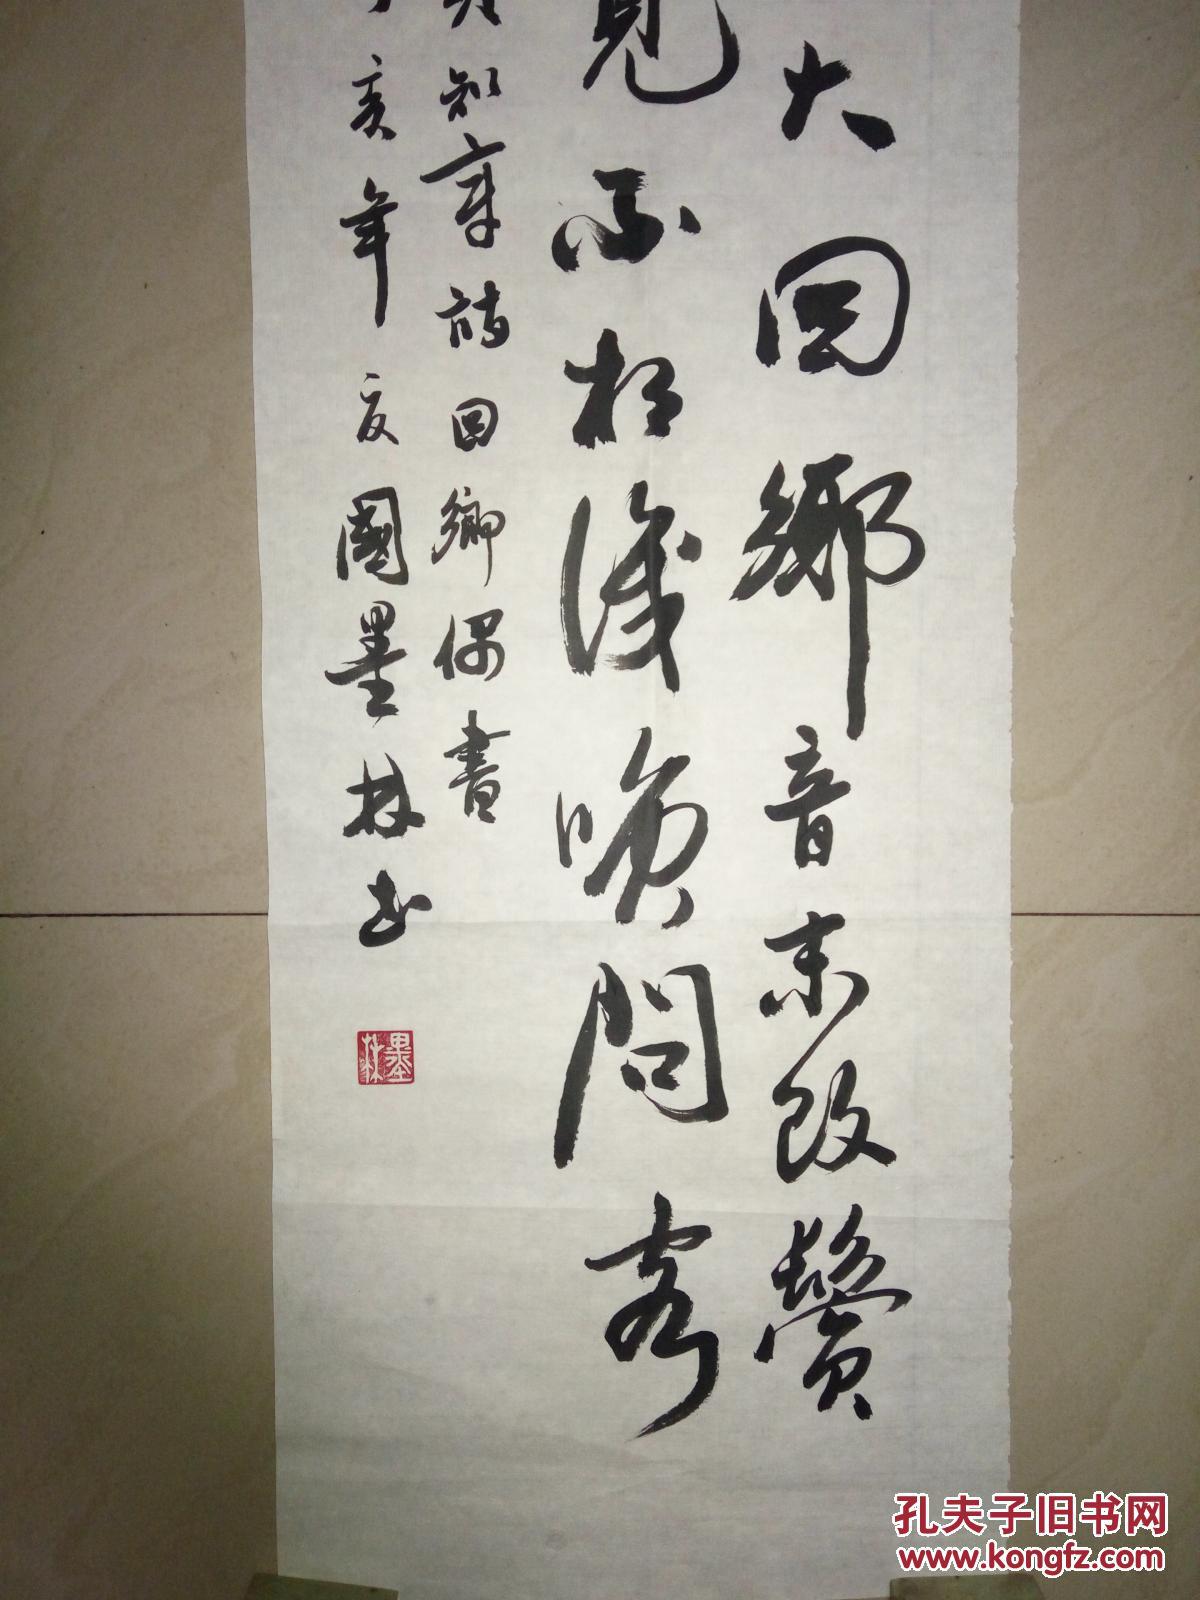 大回鄉音未改鬢
見不相識咲問客
知章诗回鄉偶書
亥年夏國墨林书
墨林
孔夫子旧书网
www.kongfz.com